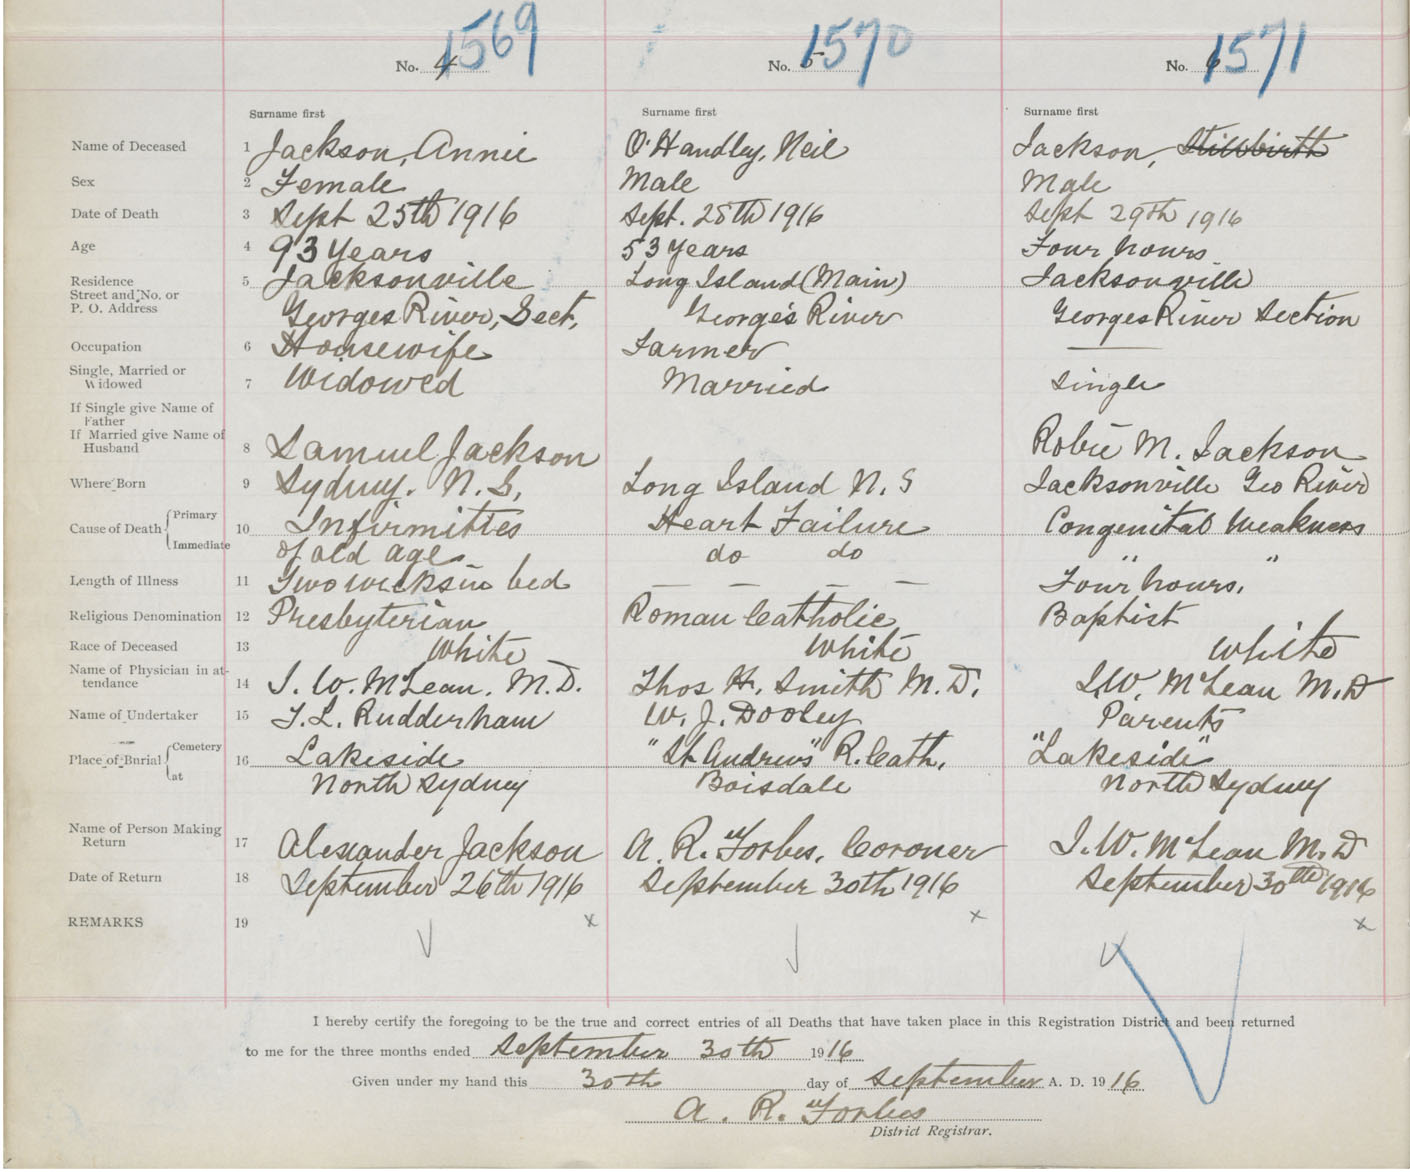 No. 4 1569 No. 5 1570 No. 6 1571
Surname first Surname first Surname first
Name of Deceased 1 Jackson, Annie O'Handley, Neil Jackson, Stillbirth
Sex 2 Female Male Male
Date of Death 3 Sept 25th 1916 Sept. 28th 1916 Sept 29th 1916
Age 4 93 Years 53 Years Four hours
Residence 5 Jacksonville Long Island (Main) Jacksonville
Street and No. or
P. O. Address Georges River, Sect. George's River Georges River Section
Occupation 6 Housewife Farmer —
Single, Married or
Widowed 7 Widowed Married Single
If Single give Name of
Father
If Married give Name of
Husband 8 Samuel Jackson Robie M. Jackson
Where Born 9 Sydney. N.S. Long Island N. S Jacksonville Geo River
Cause of Death { Primary 10 Infirmities Heart Failure Congenital Weakness
Immediate of old age do do " "
Length of Illness 11 Two weeks in bed — — — — Four hours.
Religious Denomination 12 Presbyterian Roman Catholic Baptist
Race of Deceased 13 White White White
Name of Physician in at-
tendance 14 J. W. McLean. M.D. Thos H. Smith M.D. J.W. McLean M.D
Name of Undertaker 15 F. L. Rudderham W. J. Dooley Parents
Place of Burial { Cemetery 16 Lakeside "St Andrews" R. Cath. "Lakeside"
at North Sydney Boisdale North Sydney
Name of Person Making
Return 17 Alexander Jackson A. R. Forbes, Coroner J. W. McLean M.D
Date of Return 18 September 26th 1916 September 30th 1916 September 30th 1916
REMARKS 19 x x x
I hereby certify the foregoing to be the true and correct entries of all Deaths that have taken place in this Registration District and been returned
to me for the three months ended September 30th 1916
Given under my hand this 30th day of September A. D. 1916
A. R. Forbes
District Registrar.